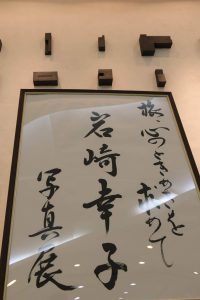 旅、心ときめきを
求めて
岩崎幸子
写真展